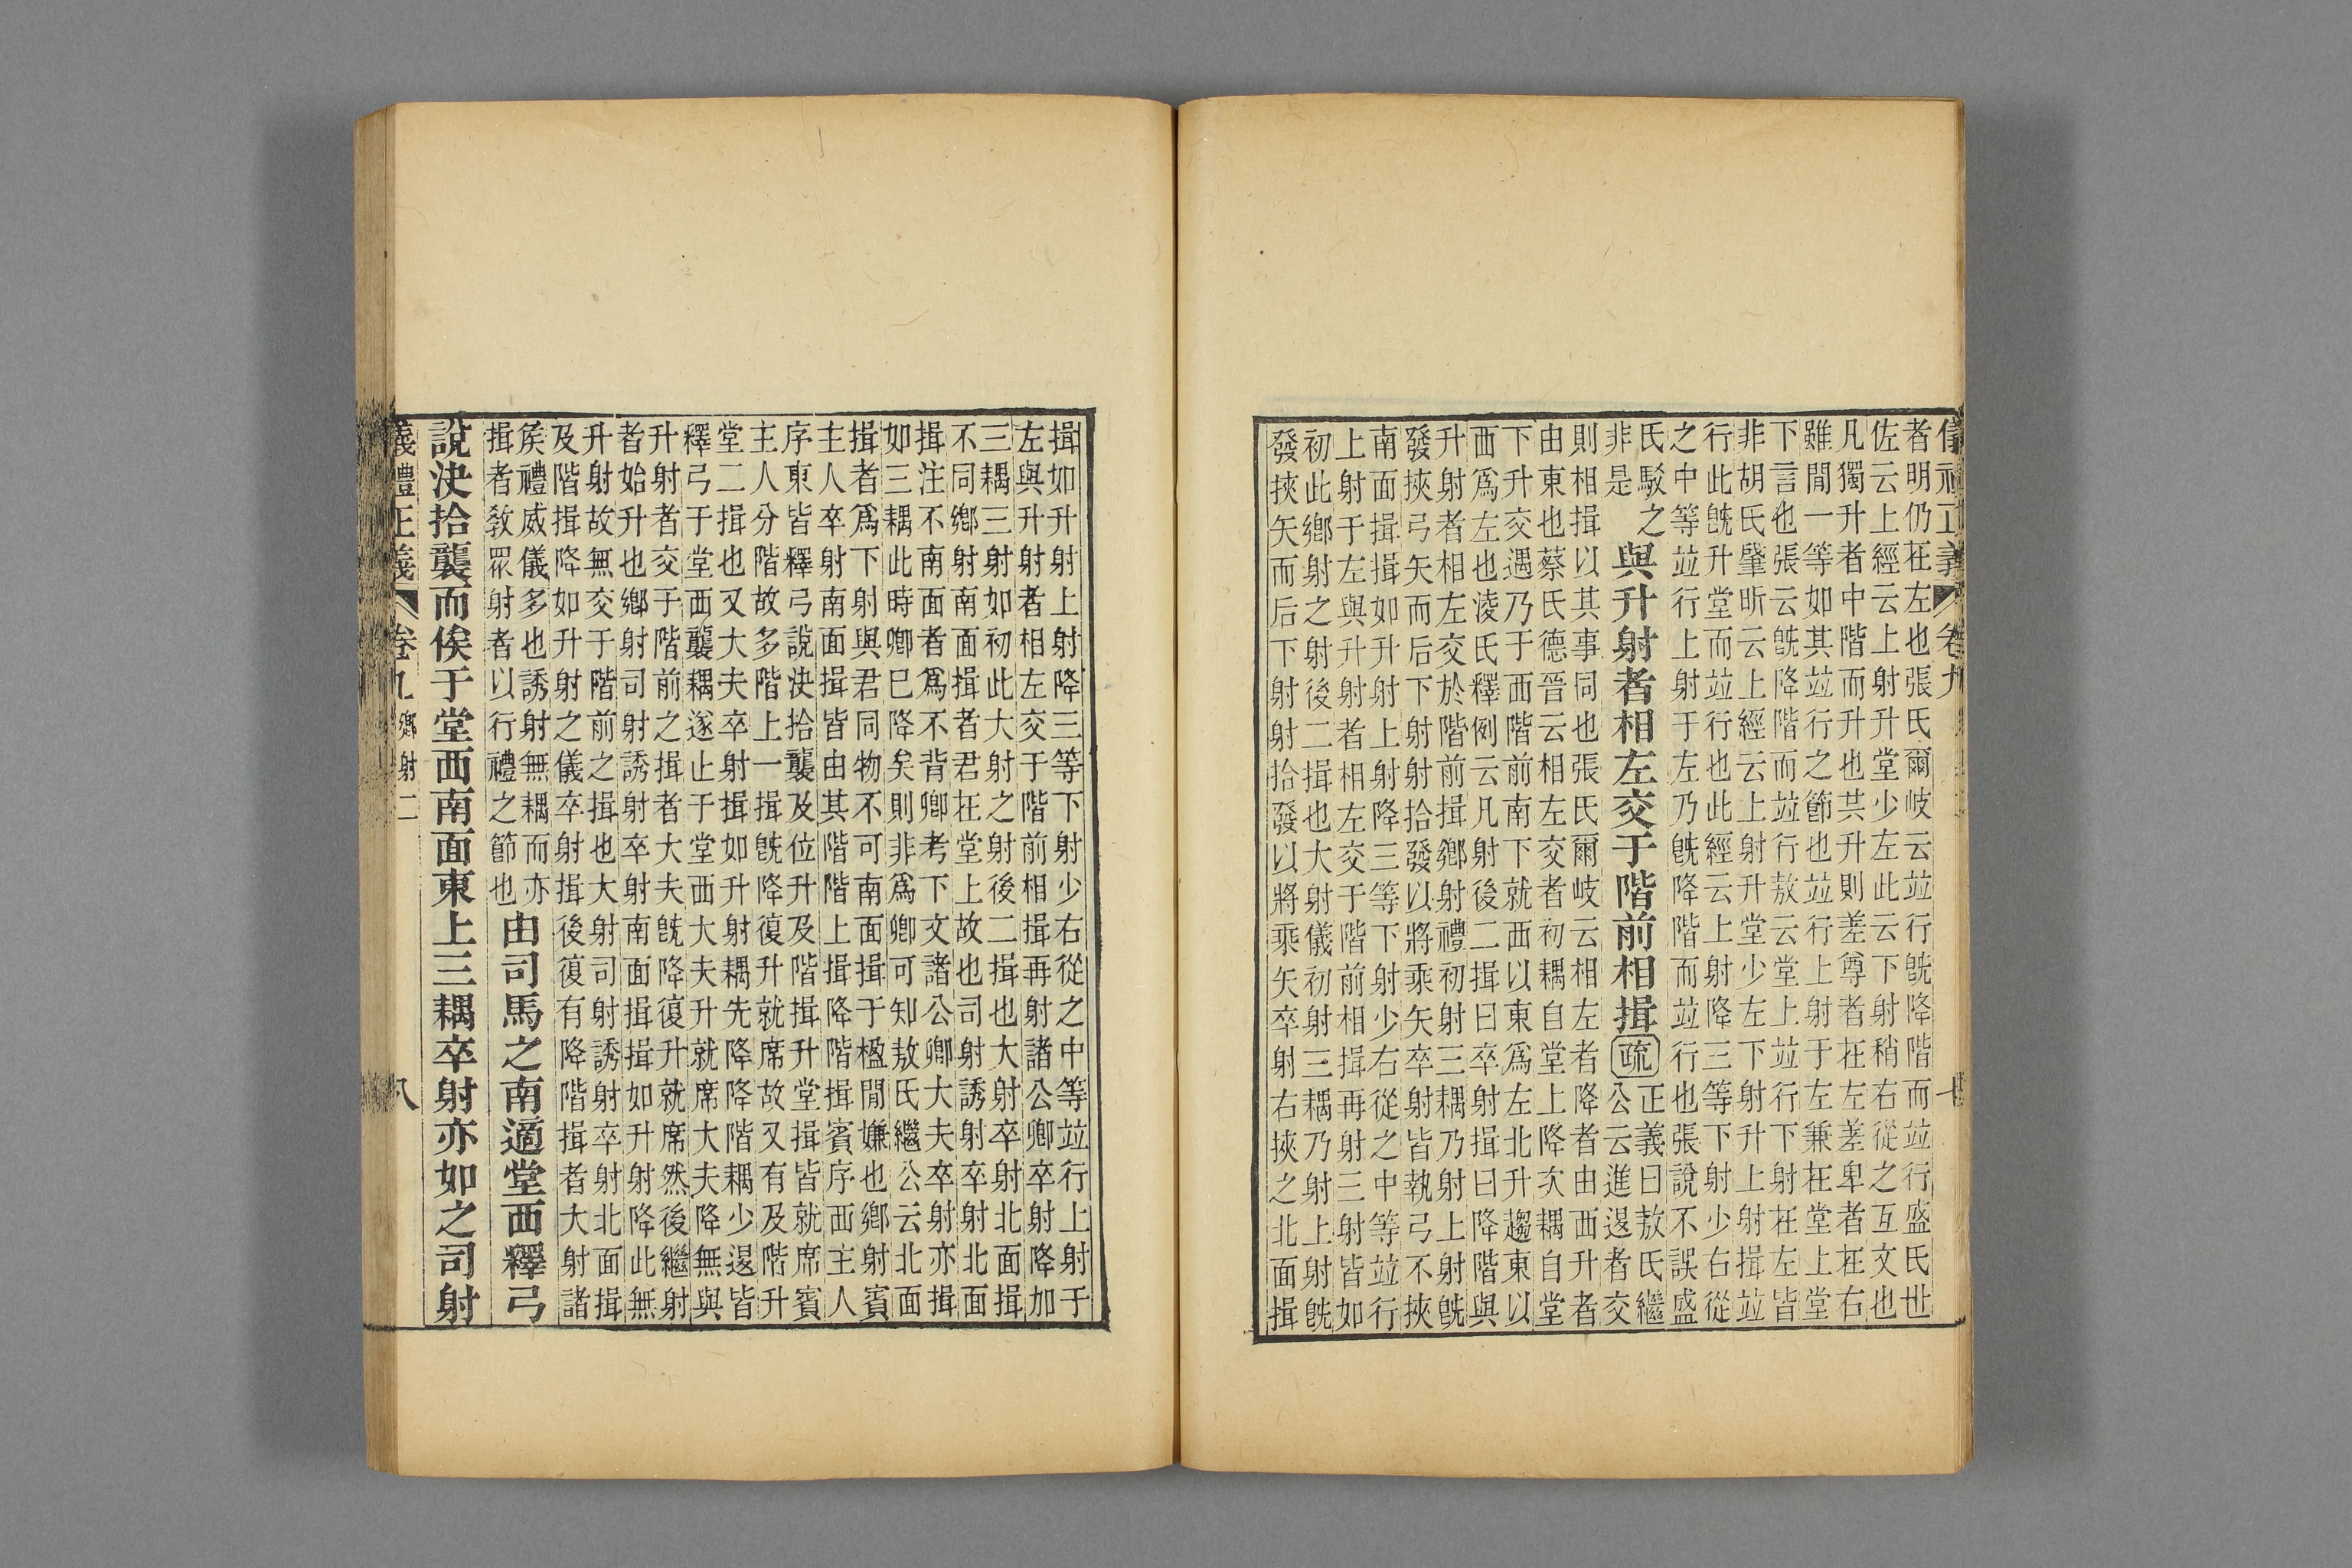 儀禮正義 卷九
者明仍在左也張氏爾岐云竝行旣降階而竝行盛氏世
佐云上經云上射升堂少左此云下射稍右從之互文也
凡獨升者中階而升也共升則差尊者在左差卑者在右
雖閒一等如其竝行之節也竝行上射于左兼在堂上堂
下言也張云旣降階而竝行敖云堂上竝行下射在左皆
非胡氏肇昕云上經云上射升堂少左下射升上射揖竝
行此旣升堂而竝行也此經云上射降三等下射少右從
之中等竝行上射于左乃旣降階而竝行也張說不誤盛
氏駁之
非是
與升射者相左交于階前相揖疏
正義曰敖氏繼
公云進退者交
則相揖以其事同也張氏爾岐云相左者降者由西升者
由東也蔡氏德晉云相左交者初耦自堂上降次耦自堂
下升交遇乃于西階前南下就西以東爲左北升趨東以
西爲左也凌氏釋例云凡射後二揖曰卒射揖曰降階與
升射者相左交於階前揖鄉射禮初射三耦乃射上射旣
發挾弓矢而后下射射拾發以將乘矢卒射皆執弓不挾
南面揖揖如升射上射降三等下射少右從之中等竝行
上射于左與升射者相左交于階前相揖再射三射皆如
初此鄉射之射後二揖也大射儀初射三耦乃射上射旣
發挾矢而后下射射拾發以將乘矢卒射右挾之北面揖
揖如升射上射降三等下射少右從之中等竝行上射于
左與升射者相左交于階前相揖再射諸公卿卒射降加
三耦三射如初此大射之射後二揖也大射卒射北面揖
不同鄉射南面揖者君在堂上故也司射誘射卒射北面
揖注不南面者爲不背卿考下文諸公卿大夫卒射亦揖
如三耦此時卿已降矣則非爲卿可知敖氏繼公云北面
揖者爲下射與君同物不可南面揖于楹閒嫌也鄉射賓
主人卒射南面揖皆由其階階上揖降階揖賓序西主人
序東皆釋弓說決拾襲及位升及階揖升堂揖皆就席賓
主人分階故多階上一揖旣降復升就席故又有及階升
堂二揖也又大夫卒射揖如升射耦先降降階耦少退皆
釋弓于堂西襲耦遂止于堂西大夫升就席大夫降無與
升射者交于階前之揖者大夫旣降復升就席然後繼射
者始升也鄉射司射誘射卒射南面揖揖如升射降此無
升射故無交于階前之揖也大射司射誘射卒射北面揖
及階揖降如升射之儀卒射揖後復有降階揖者大射諸
矦禮威儀多也誘射無耦而亦
揖者敎眾射者以行禮之節也
由司馬之南適堂西釋弓
說決拾襲而俟于堂西南面東上三耦卒射亦如之司射
義禮正義 卷九 鄉射二 八